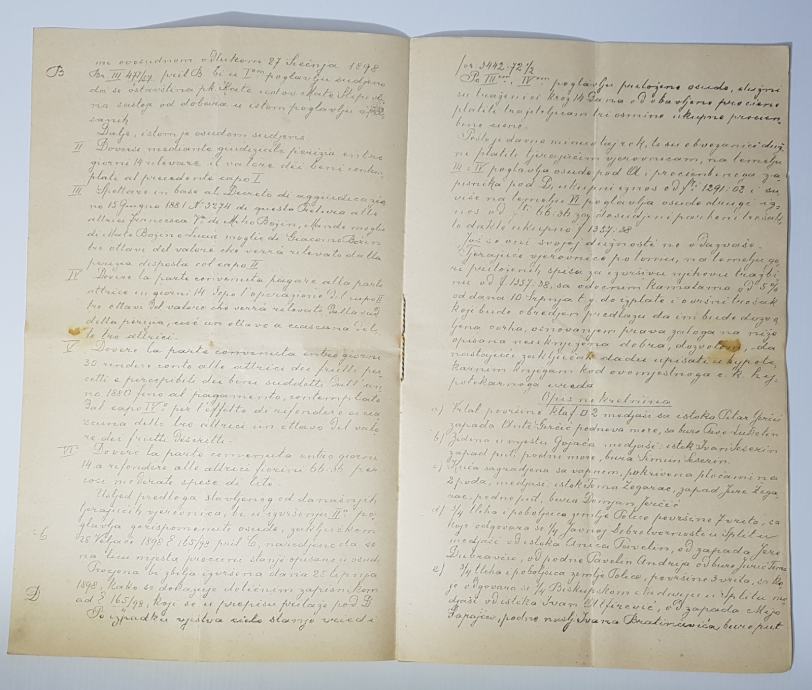 B
me ovosudnom odlukom 27 Siečnja 1898
Br. III 477/97 pril B. bi u I om poglavlju sudjeno
da se ostavština pk Kate udov Mate
na sastoji od dobara u istom poglavlju
sanih
Dalje, istom je osudom sudjeno
II Doversi mediante giudiziale perizia entro
giorni 14 rilevare il valore dei beni contem
plati al precedente capo I.
III Spettare in base al Decreto di aggiudicazio
ne 15 Giugno 1881 N° 3274 di questa Pretura alle
attrici Francesca Va di Mate Božin, Mande moglie
di Mate Božin e Lucia moglie di Giacomo Božin
tre ottavi del valore che verrà rilevato dalla
perizia disposta col capo II.
IV Dovere la parte convenuta pagare alla parte
attrice in giorni 14 dopo l'operazione del capo II
tre ottavi del valore che verrà rilevato dalla sud
detta perizia, cioè un ottavo a ciascuna del
le tre attrici.
V Dovere la parte convenuta entro giorni
30 rendere conto alle attrici dei frutti per
cetti e percipibili dei beni suddetti dall'an
no 1880 fino al pagamento, contemplato
dal capo IV° per l'effetto di rifondere a cia
scuna delle tre attrici un ottavo del valo
re dei frutti descritti.
VI Dovere la parte convenuta entro giorni
14 a rifondere alle attrici fiorini 66:36 per
così moderate spese di lite.
Usljed predloga stavljenog od današnjih
tjerajućih vjerovnica, bi u izvršenju II. po
glavlja gorispomenute osude, zaključkom
28 Veljače 1898 E 165/98 pril C, naredjeno da se
na licu mjesta procieni stanje opisano u osudi
Procjena bi zbilja izvršena dana 28 lipnja
1898, kako se dokazuje dotičnim zapisnikom
D
ad E 165/98, koji se u prepisu prilaže pod D
Po izpadku vještva cielo stanje vriedi
for. 3442:72 1/2
Po III em i IV em poglavlju priložene osude, dužni
su traženici kroz 14 dana od obavljene prociene
platiti trajiteljicam tri osmine ukupne procien
bene ciene.
Pošto je davno minuo taj rok, te su obvezanici duž
ni platiti tjerajućim vjerovnicam, na temelju
III i IV poglavlja osude pod A i procienbenog za
pisnika pod D, ukupni iznos od f. 1291:02 i su
više na temelju VI poglavlja osude drugi iz
nos od f. 66:36 za dosudjeni parbeni trošak,
to dakle ukupno f 1357:38
Još se oni svojoj dužnosti ne odazvaše.
Tjerajuće vjerovnice po tomu, na temelju go
ri priloženih spisa, za izvršivu njihovu tražbi
nu od f 1357:38, sa odnosnim kamatama od 5%
od dana 10 Srpnja t.g. do izplate i ovršni trošak
koji bude obredjen predlažu da im bude dozvo
ljena ovrha, osnovanjem prava zaloga na niže
opisana nekretna dobra, dozvolom, da
nastajući zaključak dadu upisati u hypote
karnim knjigam kod ovomjestnoga c. k. hy
potekarnog ureda
Opis nekretnina
a)
zapada Ante Grčić podneva more, sa bure Pave
b) Zidina u mjestu Gojača medjaši: istok Ivan Seserin
zapad put, podne more, bura Šimun Seserin.
c) Kuća sagradjena sa vapnom, pokrivena pločami na
2 poda, medjaši: istok Toma Žegarac, zapad Jure Žega
rac, podne put, bura Damjan Jerčić
d) 3/4 tleha i poboljšica zemlje Polico površine 7 vreta, sa
koje odgovara se 1/4 Javnoj Dobrotvornosti u Splitu
medjaši: od istoka Anića Pavelin, od zapada Jere
Dubravčić, od podne Pavelin Andrija od bure Jurić Toma
e) 3/4 tleha i poboljšica zemlje Polico, površine 3 vrila, sa ko
je odgovara se 1/4 Biskupskom Sindiku u Splitu me
djaši: od istoka Ivan, od zapada Mijo
podne Ivana Bratinčevića, bure put